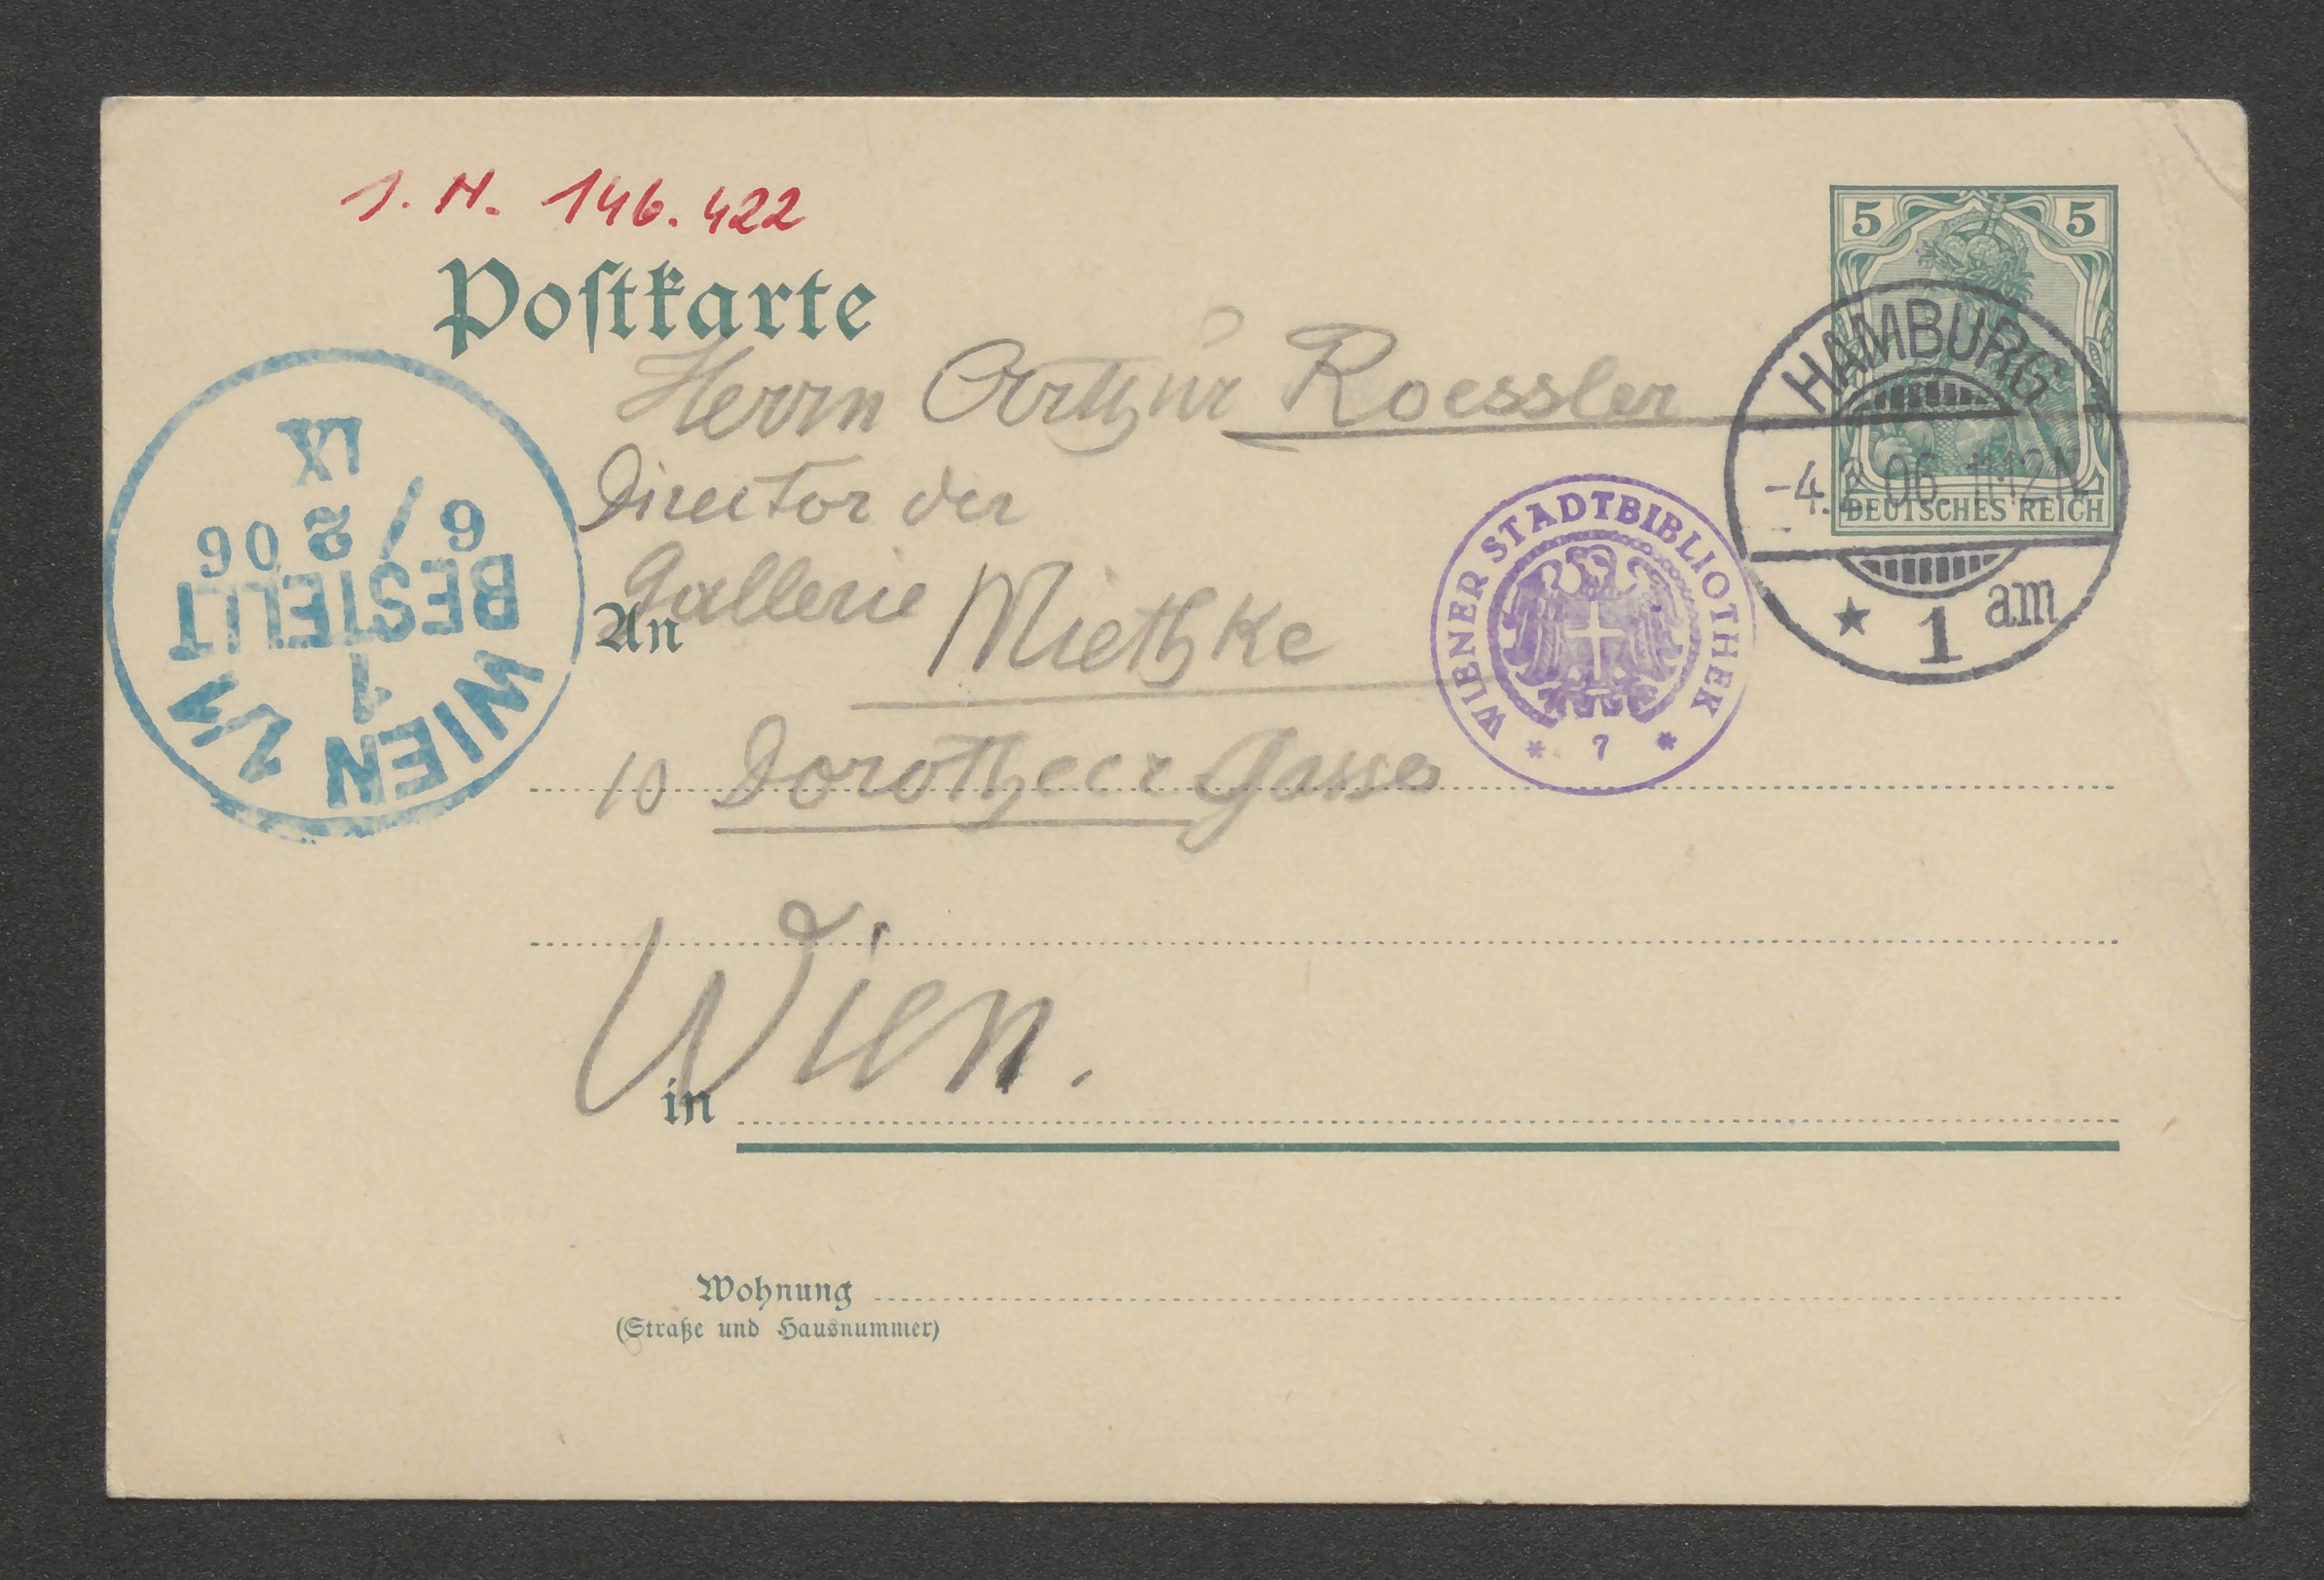 J. N. 146.422
Postkarte
5 5
DEUTSCHES REICH
HAMBURG
-4.2.06. 11-12 N
* 1 am
Herrn Arthur Roessler
Director der
Gallerie Miethke
An
10 Dorotheer Gasse
Wien.
in
Wohnung
(Straße und Hausnummer)
WIENER STADTBIBLIOTHEK
* 7 *
WIEN 1/1
1
BESTELLT
6/2 06
IX